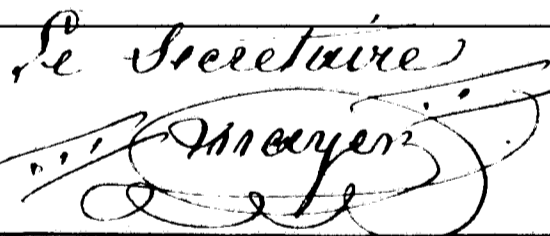 Le Secretaire
Mayer